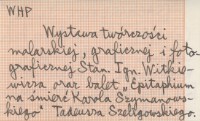 WHP
Wystawa twórczości
malarskiej, graficznej i foto
graficznej Stan. Ign. Witkie-
wicza oraz balet „Epitaphium
na śmierć Karola Szymanows-
kiego" Tadeusza Szeligowskiego.